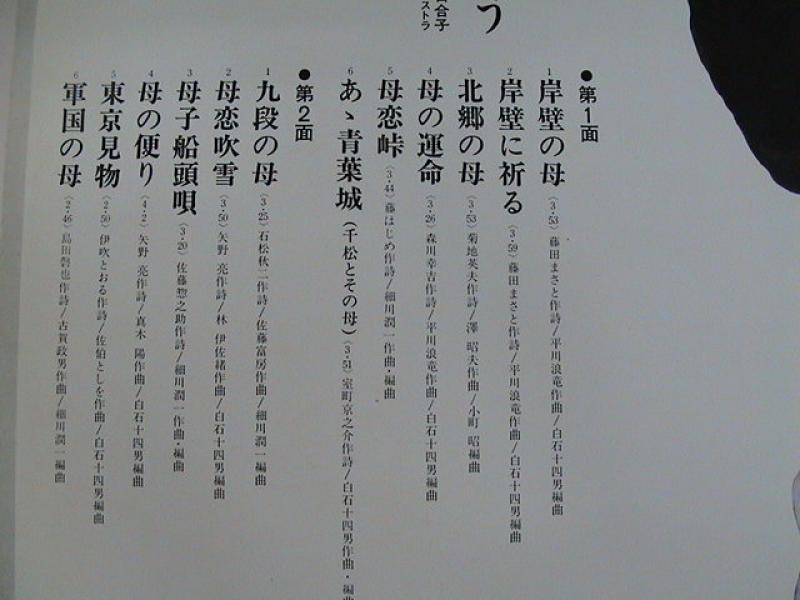 う
合子
ストラ
●第1面
1 岸壁の母 (3・53) 藤田まさと作詩/平川浪竜作曲/白石十四男編曲
2 岸壁に祈る (3・59) 藤田まさと作詩/平川浪竜作曲/白石十四男編曲
3 北郷の母 (3・53) 菊地英夫作詩/澤 昭夫作曲/小町 昭編曲
4 母の運命 (3・26) 森川幸吉作詩/平川浪竜作曲/白石十四男編曲
5 母恋峠 (3・44) 藤はじめ作詩/細川潤一作曲・編曲
6 あゝ青葉城(千松とその母) (3・51) 室町京之介作詩/白石十四男作曲・編
●第2面
1 九段の母 (3・25) 石松秋二作詩/佐藤富房作曲/細川潤一編曲
2 母恋吹雪 (3・50) 矢野 亮作詩/林 伊佐緒作曲/白石十四男編曲
3 母子船頭唄 (3・20) 佐藤惣之助作詩/細川潤一作曲・編曲
4 母の便り (4・2) 矢野 亮作詩/真木 陽作曲/白石十四男編曲
5 東京見物 (2・50) 伊吹とおる作詩/佐伯としを作曲/白石十四男編曲
6 軍国の母 (2・46) 島田磬也作詩/古賀政男作曲/細川潤一編曲